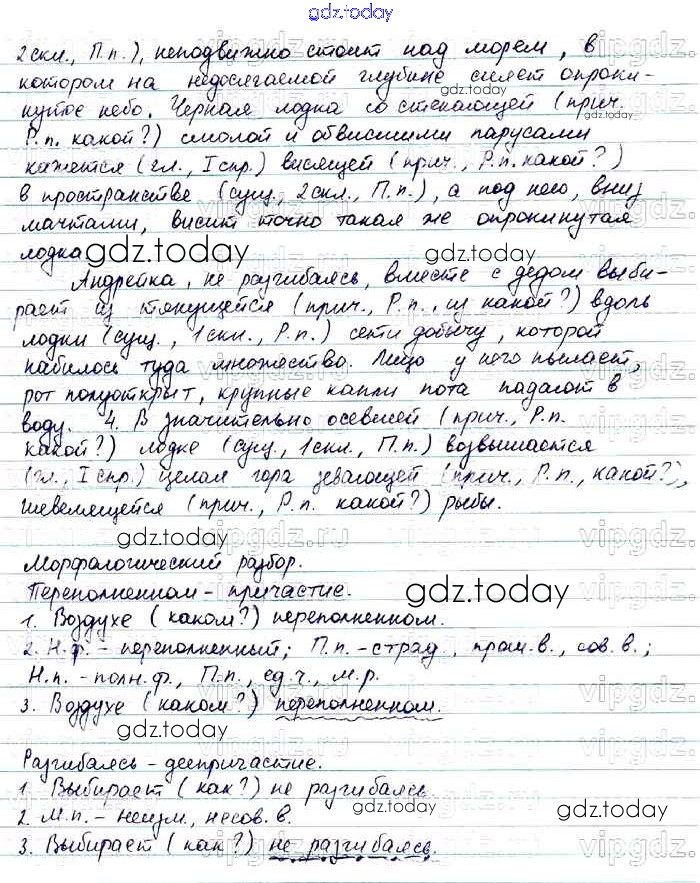 gdz.today
2 скл., П.п.), неподвижно стоит над морем, в
котором на недосягаемой глубине сияет опроки-
нутое небо. Черная лодка со стекающей (прич.
Р.п. какой?) смолой и обвисшими парусами
кажется (гл., I спр.) висящей (прич., Р.п. какой?)
в пространстве (сущ., 2 скл., П.п.), а под нею, вниз
мачтами, висит точно такая же опрокинутая
лодка
gdz.today
Андрейка, не разгибаясь, вместе с дедом выби-
рает из тянущейся (прич., Р.п., из какой?) вдоль
лодки (сущ., 1 скл., Р.п.) сети добычу, которой
набилось туда множество. Лицо у него пылает,
рот полуоткрыт, крупные капли пота падают в
воду. 4. В значительно осевшей (прич., Р.п.
какой?) лодке (сущ., 1 скл., П.п.) возвышается
(гл., I спр.) целая гора зевающей (прич., Р.п., какой?),
шевелящейся (прич., Р.п. какой?) рыбы.
gdz.today
Морфологический разбор.
Переполненном - причастие.
gdz.today
1. Воздухе (каком?) переполненном.
2. Н.ф. - переполненный; П.п. - страд., прош.в., сов.в.;
Н.п. - полн.ф., П.п., ед.ч., м.р.
3. Воздухе (каком?) переполненном.
gdz.today
Разгибаясь - деепричастие.
1. Выбирает (как?) не разгибаясь
2. М.п. - неизм., несов.в.
3. Выбирает (как?) не разгибаясь.